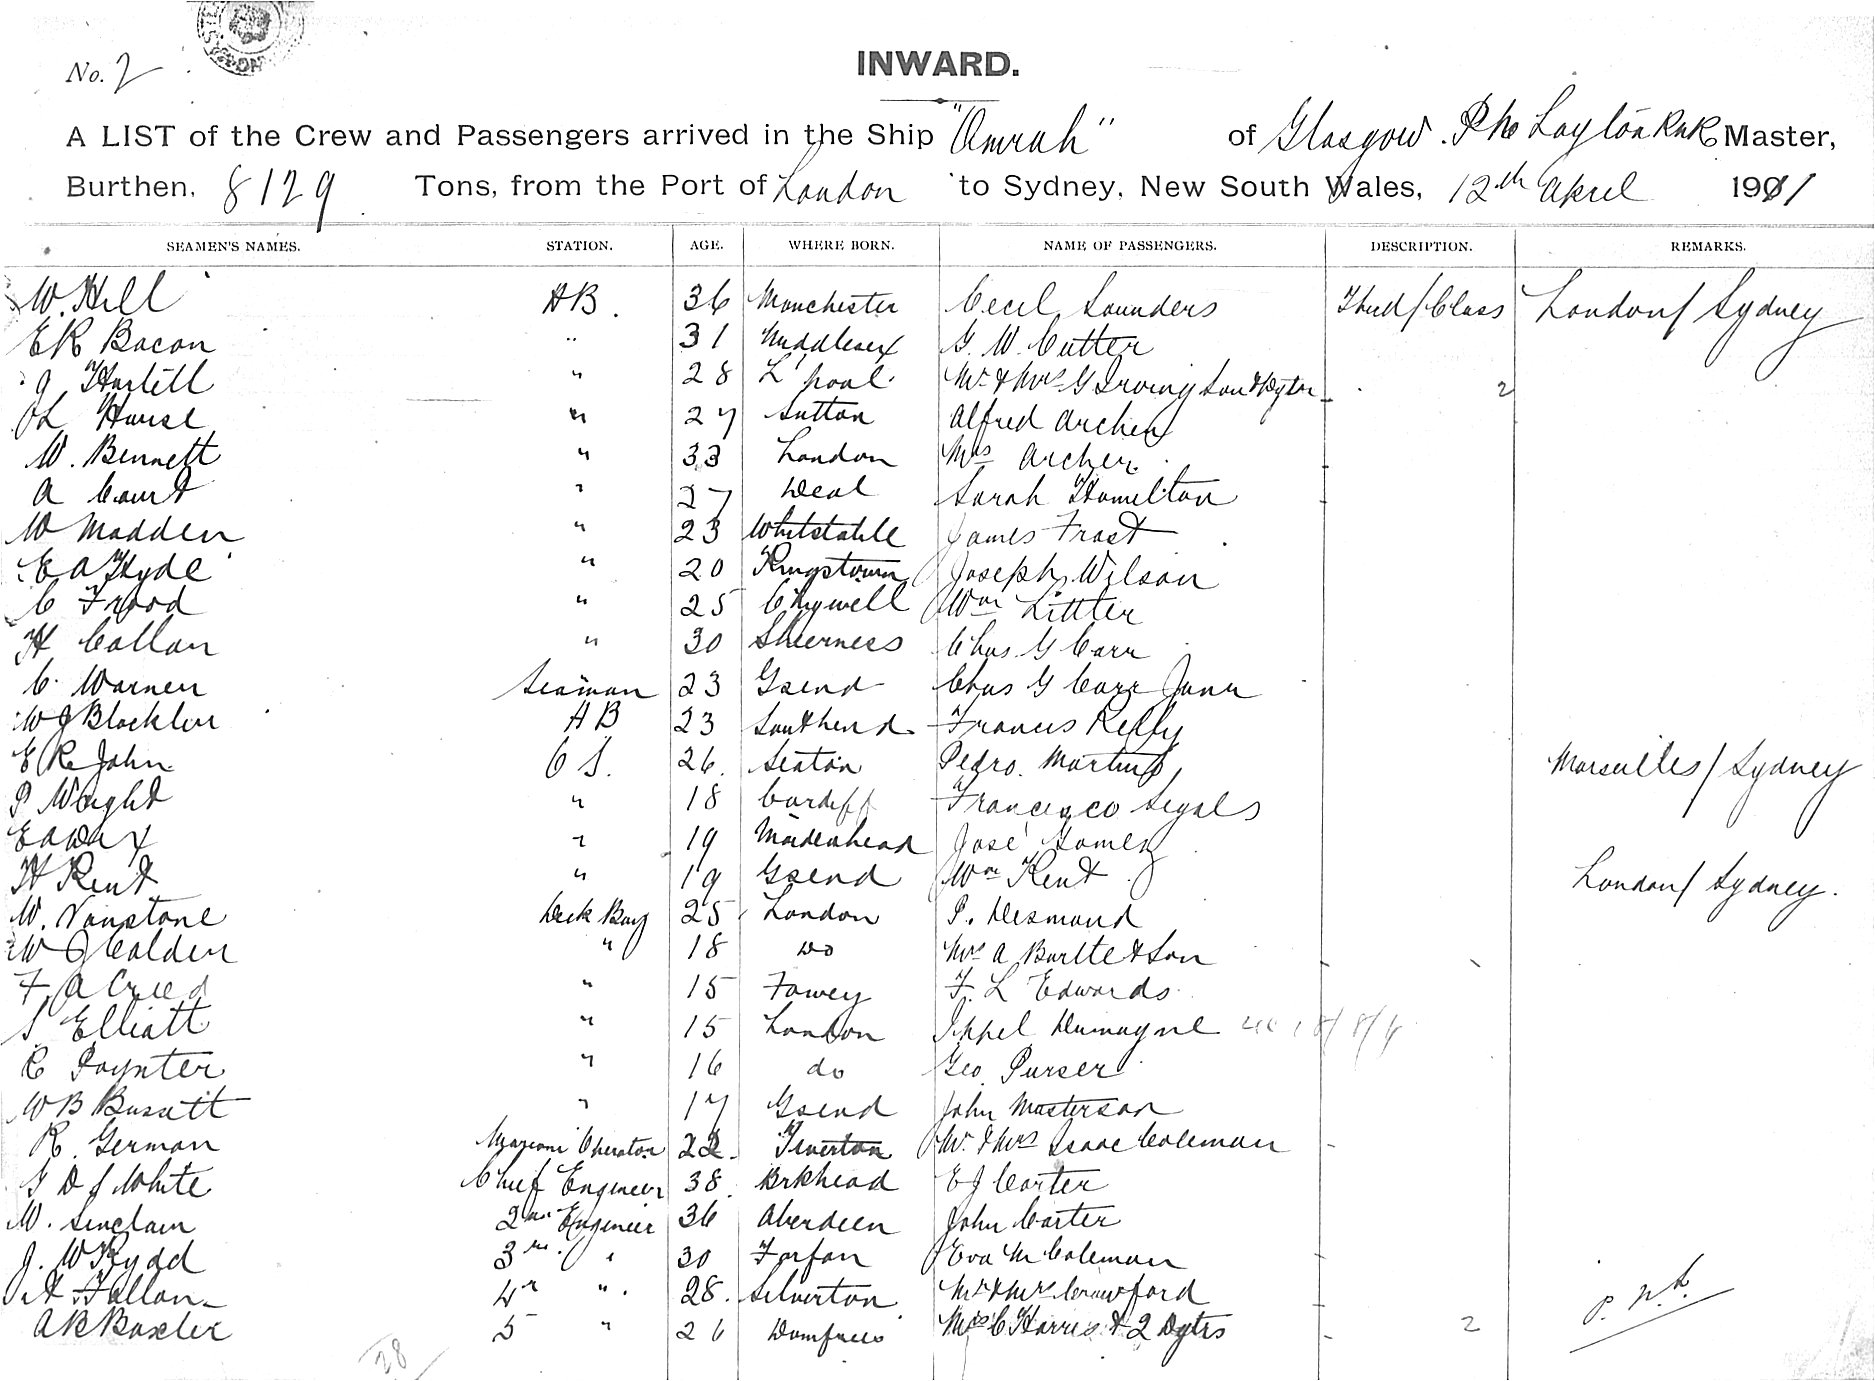 No. 2
INWARD.
A LIST of the Crew and Passengers arrived in the Ship "Omrah" of Glasgow. Layton RNR Master,
Burthen, 8129 Tons, from the Port of London to Sydney, New South Wales, 12th April 1911
SEAMEN'S NAMES. STATION. AGE. WHERE BORN. NAME OF PASSENGERS. DESCRIPTION. REMARKS.
W. Hill AB. 36 Manchester Cecil Saunders Third/Class London/Sydney
E R Bacon " 31 Middlesex G. W. Cutter
J Hartill " 28 L'pool Mr & Mrs G Irving Son & Dgtr 2
House " 27 Sutton Alfred Archer
W. Bennett " 33 London Mrs Archer
A Court " 27 Deal Sarah Hamilton
W Madden " 23 Whitstable James Frost
E A Hyde " 20 Kingstown Joseph Wilson
C Frood " 25 Chigwell Wm Littler
H Callan " 30 Sheerness Chas. G Carr
C. Warner Seaman 23 Gsend Chas G Carr Junr
W J Blacklin AB 23 Southend Francis Reilly
E R John O S. 26. Seaton Pedro. Martin Marseilles/Sydney
P Wright " 18 Cardiff Francisco Segals
E A Day " 19 Maidenhead José Gomez
H Kent " 19 Gsend Wm Kent London/Sydney.
W. Vanstone Deck Boy 25 London P. Desmond
W J Calden " 18 Do Mrs A Burlte & Son
F A Creed " 15 Fowey F. L Edwards
S Elliott " 15 London Dumayne
R Poynter " 16 do Geo. Purser
W B Bussett " 17 Gsend John Masterson
R. German Marconi Operator 22. Tiverton Mr. & Mrs Isaac Coleman
G D J White Chief Engineer 38 Brkhead E J Carter
W. Sinclair 2nd Engineer 36 Aberdeen John Carter
J. W Kydd 3rd " 30 Forfar Eva M Coleman
H Fallon 4th " 28. Silverton Mr & Mrs Crawford
A B Baxter 5 " 26 Dumfries Mrs C Harris & 2 Dgtrs 2
28